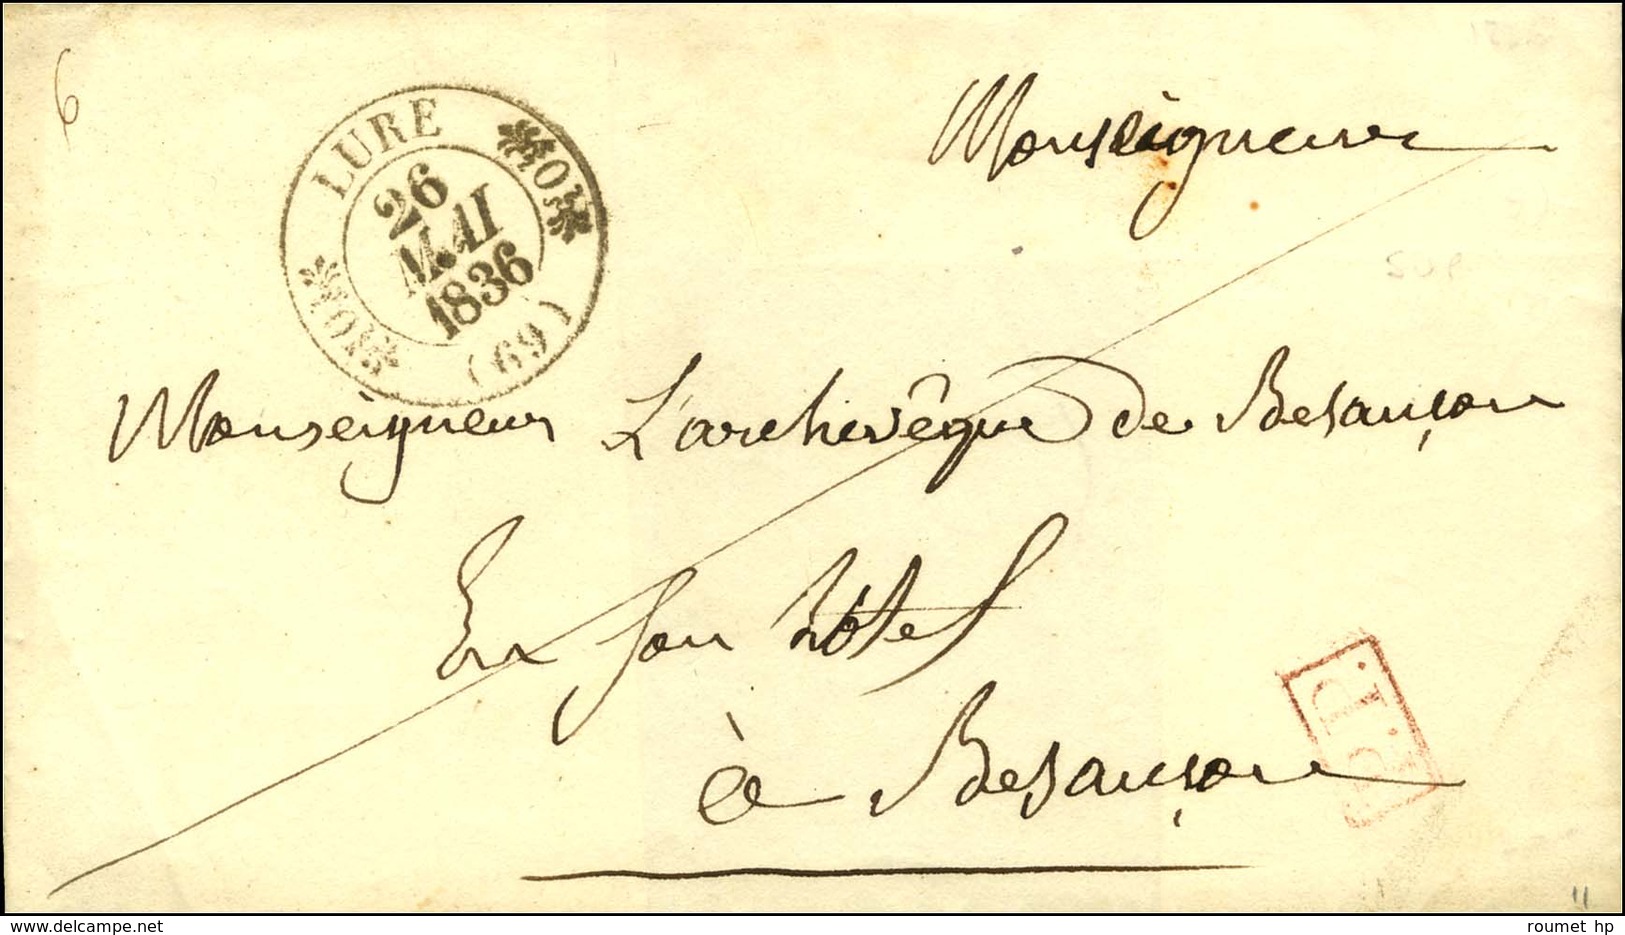 6
LURE
26
MAI
1836
(69)
Monseigneur
Monseigneur L'archevêque de Besançon
En son hôtel
à Besançon
P.P.
11
roumet hp